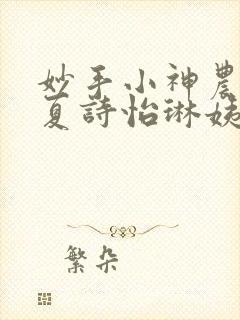 妙手小神農
夏詩怡琳姨
繁朵